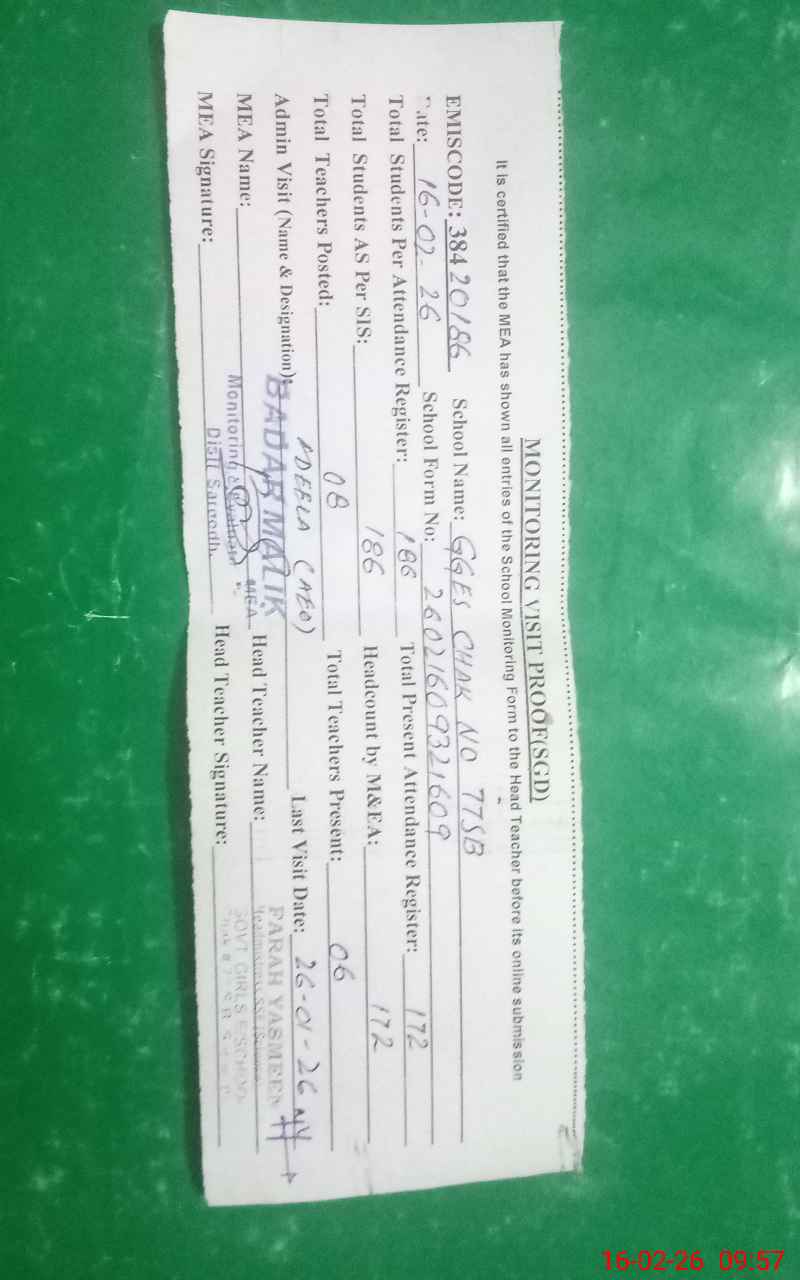 MONITORING VISIT PROOF(SGD)
It is certified that the MEA has shown all entries of the School Monitoring Form to the Head Teacher before its online submission
EMISCODE: 38420186 School Name: GGES CHAK NO 77SB
Date: 16-02-26 School Form No: 26021609321609
Total Students Per Attendance Register: 186 Total Present Attendance Register: 172
Total Students AS Per SIS: 186 Headcount by M&EA: 172
Total Teachers Posted: 08 Total Teachers Present: 06
Admin Visit (Name & Designation): ADEELA (AEO) Last Visit Date: 26-01-26
MEA Name: BADAR MALIK Head Teacher Name: FARAH YASMEEN
Monitoring & MEA
MEA Signature: Distt Head Teacher Signature:
GOVT GIRLS E/SCHOOL
16-02-26 09:57